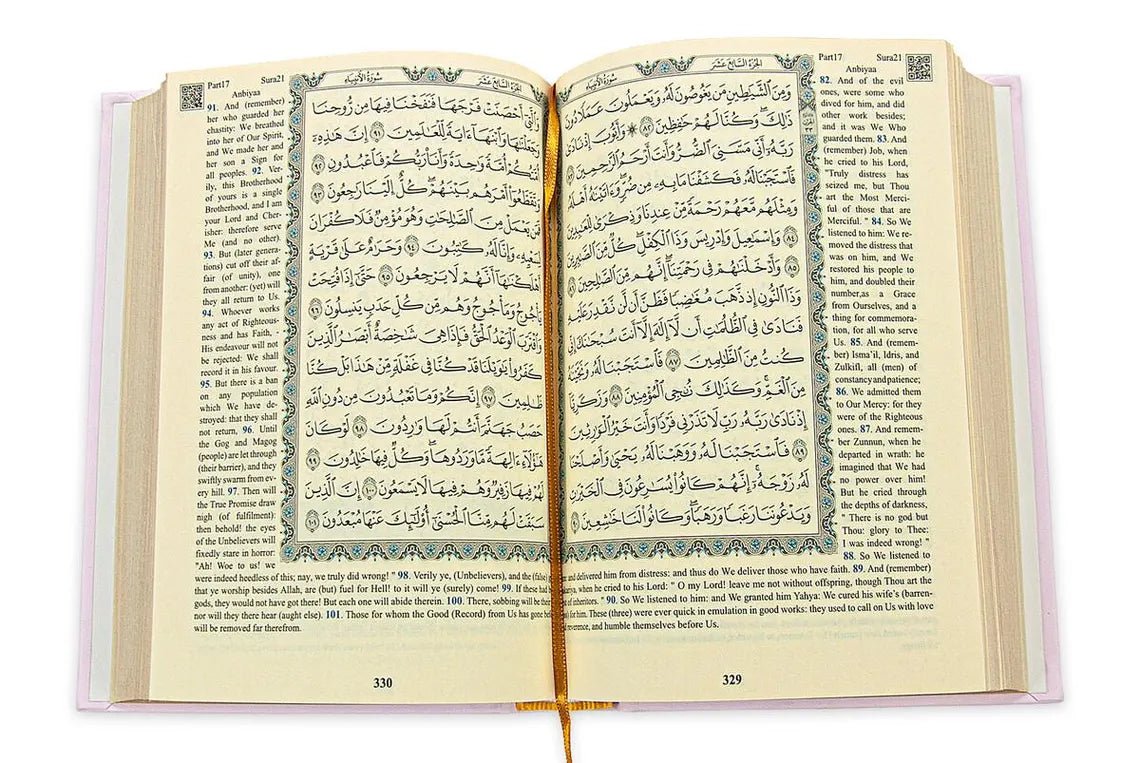 الجزء السابع عشر
سورة الأنبياء
وَمِنَ الشَّيَاطِينِ مَن يَغُوصُونَ لَهُ وَيَعْمَلُونَ عَمَلًا دُونَ
ذَٰلِكَ وَكُنَّا لَهُمْ حَافِظِينَ ٨٢ وَأَيُّوبَ إِذْ نَادَىٰ
رَبَّهُ أَنِّي مَسَّنِيَ الضُّرُّ وَأَنتَ أَرْحَمُ الرَّاحِمِينَ
فَاسْتَجَبْنَا لَهُ فَكَشَفْنَا مَا بِهِ مِن ضُرٍّ وَآتَيْنَاهُ أَهْلَهُ
وَمِثْلَهُم مَّعَهُمْ رَحْمَةً مِّنْ عِندِنَا وَذِكْرَىٰ لِلْعَابِدِينَ
٨٤ وَإِسْمَاعِيلَ وَإِدْرِيسَ وَذَا الْكِفْلِ كُلٌّ مِّنَ الصَّابِرِينَ
٨٥ وَأَدْخَلْنَاهُمْ فِي رَحْمَتِنَا إِنَّهُم مِّنَ الصَّالِحِينَ
وَذَا النُّونِ إِذ ذَّهَبَ مُغَاضِبًا فَظَنَّ أَن لَّن نَّقْدِرَ عَلَيْهِ
فَنَادَىٰ فِي الظُّلُمَاتِ أَن لَّا إِلَٰهَ إِلَّا أَنتَ سُبْحَانَكَ إِنِّي
كُنتُ مِنَ الظَّالِمِينَ ٨٧ فَاسْتَجَبْنَا لَهُ وَنَجَّيْنَاهُ
مِنَ الْغَمِّ وَكَذَٰلِكَ نُنجِي الْمُؤْمِنِينَ ٨٨ وَزَكَرِيَّا
إِذْ نَادَىٰ رَبَّهُ رَبِّ لَا تَذَرْنِي فَرْدًا وَأَنتَ خَيْرُ الْوَارِثِينَ
٨٩ فَاسْتَجَبْنَا لَهُ وَوَهَبْنَا لَهُ يَحْيَىٰ وَأَصْلَحْنَا
لَهُ زَوْجَهُ إِنَّهُمْ كَانُوا يُسَارِعُونَ فِي الْخَيْرَاتِ
وَيَدْعُونَنَا رَغَبًا وَرَهَبًا وَكَانُوا لَنَا خَاشِعِينَ
Part17 Sura21
Anbiyaa
82. And of the evil
ones, were some who
dived for him, and did
other work besides;
and it was We Who
guarded them. 83. And
(remember) Job, when
he cried to his Lord,
"Truly distress has
seized me, but Thou
art the Most Merci-
ful of those that are
Merciful. " 84. So We
listened to him: We re-
moved the distress that
was on him, and We
restored his people to
him, and doubled their
number,as a Grace
from Ourselves, and a
thing for commemora-
tion, for all who serve
Us. 85. And (remem-
ber) Isma'il, Idris, and
Zulkifl, all (men) of
constancy and patience;
86. We admitted them
to Our Mercy: for they
were of the Righteous
ones. 87. And remem-
ber Zunnun, when he
departed in wrath: he
imagined that We had
no power over him!
But he cried through
the depths of darkness,
" There is no god but
Thou: glory to Thee:
I was indeed wrong! "
88. So We listened to
and delivered him from distress: and thus do We deliver those who have faith. 89. And (remember)
when he cried to his Lord: " O my Lord! leave me not without offspring, though Thou art the
of inheritors. " 90. So We listened to him: and We granted him Yahya: We cured his wife's (barren-
for him. These (three) were ever quick in emulation in good works: they used to call on Us with love
reverence, and humble themselves before Us.
329
الجزء السابع عشر
سورة الأنبياء
وَالَّتِي أَحْصَنَتْ فَرْجَهَا فَنَفَخْنَا فِيهَا مِن رُّوحِنَا
وَجَعَلْنَاهَا وَابْنَهَا آيَةً لِّلْعَالَمِينَ ٩١ إِنَّ هَٰذِهِ
أُمَّتُكُمْ أُمَّةً وَاحِدَةً وَأَنَا رَبُّكُمْ فَاعْبُدُونِ ٩٢
وَتَقَطَّعُوا أَمْرَهُم بَيْنَهُمْ كُلٌّ إِلَيْنَا رَاجِعُونَ ٩٣
فَمَن يَعْمَلْ مِنَ الصَّالِحَاتِ وَهُوَ مُؤْمِنٌ فَلَا كُفْرَانَ
لِسَعْيِهِ وَإِنَّا لَهُ كَاتِبُونَ ٩٤ وَحَرَامٌ عَلَىٰ قَرْيَةٍ
أَهْلَكْنَاهَا أَنَّهُمْ لَا يَرْجِعُونَ ٩٥ حَتَّىٰ إِذَا فُتِحَتْ
يَأْجُوجُ وَمَأْجُوجُ وَهُم مِّن كُلِّ حَدَبٍ يَنسِلُونَ ٩٦
وَاقْتَرَبَ الْوَعْدُ الْحَقُّ فَإِذَا هِيَ شَاخِصَةٌ أَبْصَارُ الَّذِينَ
كَفَرُوا يَا وَيْلَنَا قَدْ كُنَّا فِي غَفْلَةٍ مِّنْ هَٰذَا بَلْ كُنَّا
ظَالِمِينَ ٩٧ إِنَّكُمْ وَمَا تَعْبُدُونَ مِن دُونِ اللَّهِ
حَصَبُ جَهَنَّمَ أَنتُمْ لَهَا وَارِدُونَ ٩٨ لَوْ كَانَ
هَٰؤُلَاءِ آلِهَةً مَّا وَرَدُوهَا وَكُلٌّ فِيهَا خَالِدُونَ ٩٩
لَهُمْ فِيهَا زَفِيرٌ وَهُمْ فِيهَا لَا يَسْمَعُونَ ١٠٠ إِنَّ الَّذِينَ
سَبَقَتْ لَهُم مِّنَّا الْحُسْنَىٰ أُولَٰئِكَ عَنْهَا مُبْعَدُونَ ١٠١
Part17 Sura21
Anbiyaa
91. And (remember)
her who guarded her
chastity: We breathed
into her of Our Spirit,
and We made her and
her son a Sign for
all peoples. 92. Ver-
ily, this Brotherhood
of yours is a single
Brotherhood, and I am
your Lord and Cher-
isher: therefore serve
Me (and no other).
93. But (later genera-
tions) cut off their af-
fair (of unity), one
from another: (yet) will
they all return to Us.
94. Whoever works
any act of Righteous-
ness and has Faith, -
His endeavour will not
be rejected: We shall
record it in his favour.
95. But there is a ban
on any population
which We have de-
stroyed: that they shall
not return, 96. Until
the Gog and Magog
(people) are let through
(their barrier), and they
swiftly swarm from ev-
ery hill. 97. Then will
the True Promise draw
nigh (of fulfilment):
then behold! the eyes
of the Unbelievers will
fixedly stare in horror:
"Ah! Woe to us! we
were indeed heedless of this; nay, we truly did wrong! " 98. Verily ye, (Unbelievers), and the (false)
that ye worship besides Allah, are (but) fuel for Hell! to it will ye (surely) come! 99. If these had
gods, they would not have got there! But each one will abide therein. 100. There, sobbing will be their
nor will they there hear (aught else). 101. Those for whom the Good (Record) from Us has gone before
will be removed far therefrom.
330